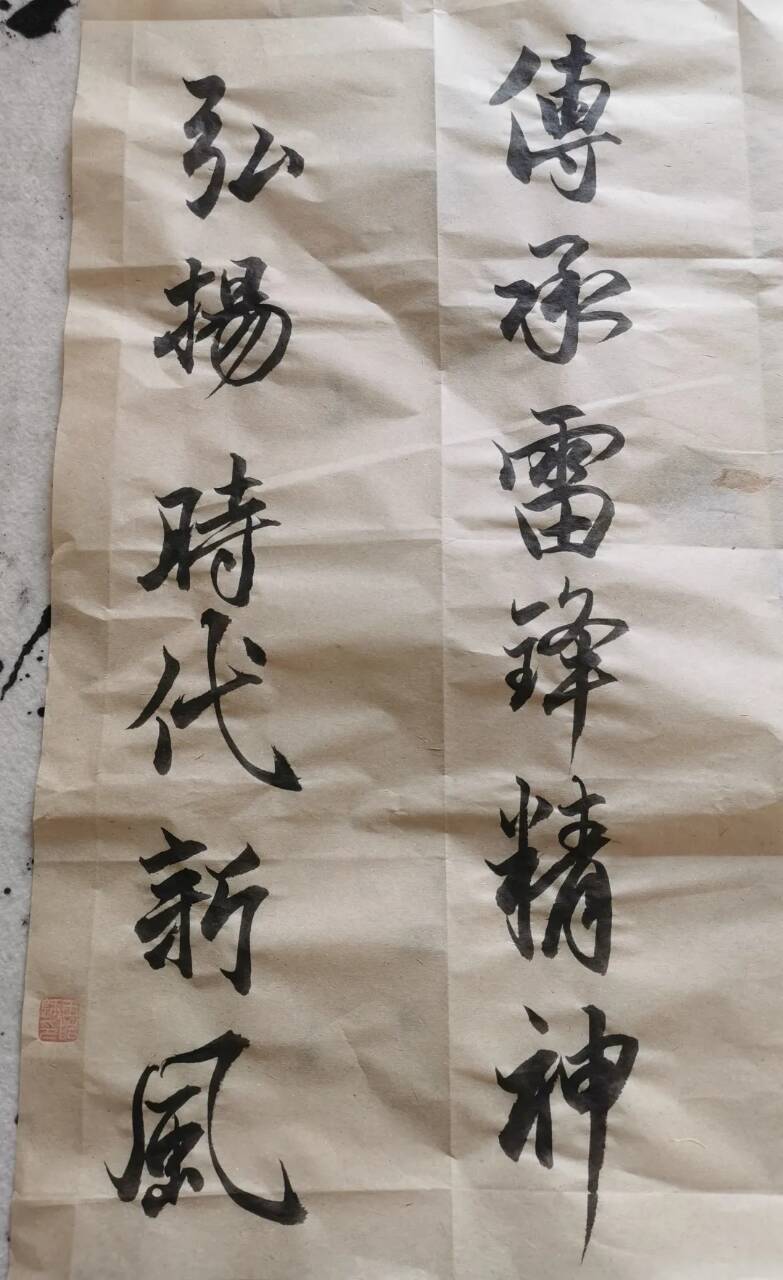 傳承雷鋒精神
弘揚時代新風